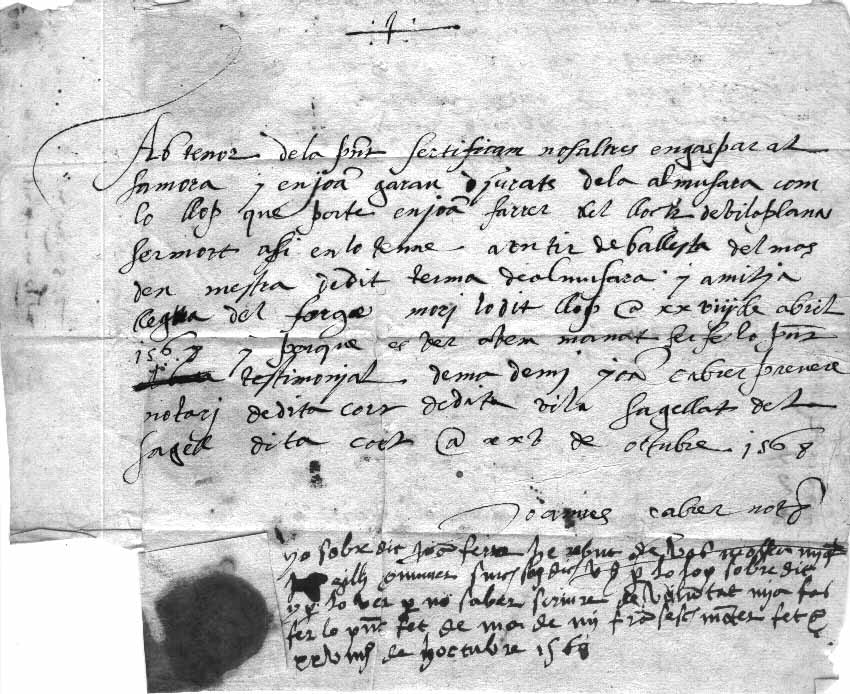 Ab tenor dela pnt sertificam nosaltres engaspar al
samora y enjoã garau djurats dela almusara com
lo llop que porte enjoã farrer del lloch de bilaplana
ser mort assi en lo terme a un tir de ballesta del mas
den mestra dedit terma de almusara y a mitja
llegua del forge mori lodit llop @ xxviiij de abril
156 y perque es ver abem manat fer fe lo pnt
testimonjal de ma de mj joã cabrer prevere
notarj dedita cort dedita vila sagellat del
sagell dita cort @ xxv de octubre 1568
Joannes cabrer not
yo sobre dit joã ferre he rebut de vos mosse
per lo lop sobre dit
y per lo ver per no saber scriure de voluntat mja fas
fer lo pnt fet de ma de mj frãsesc fet
de hoctubre 1568